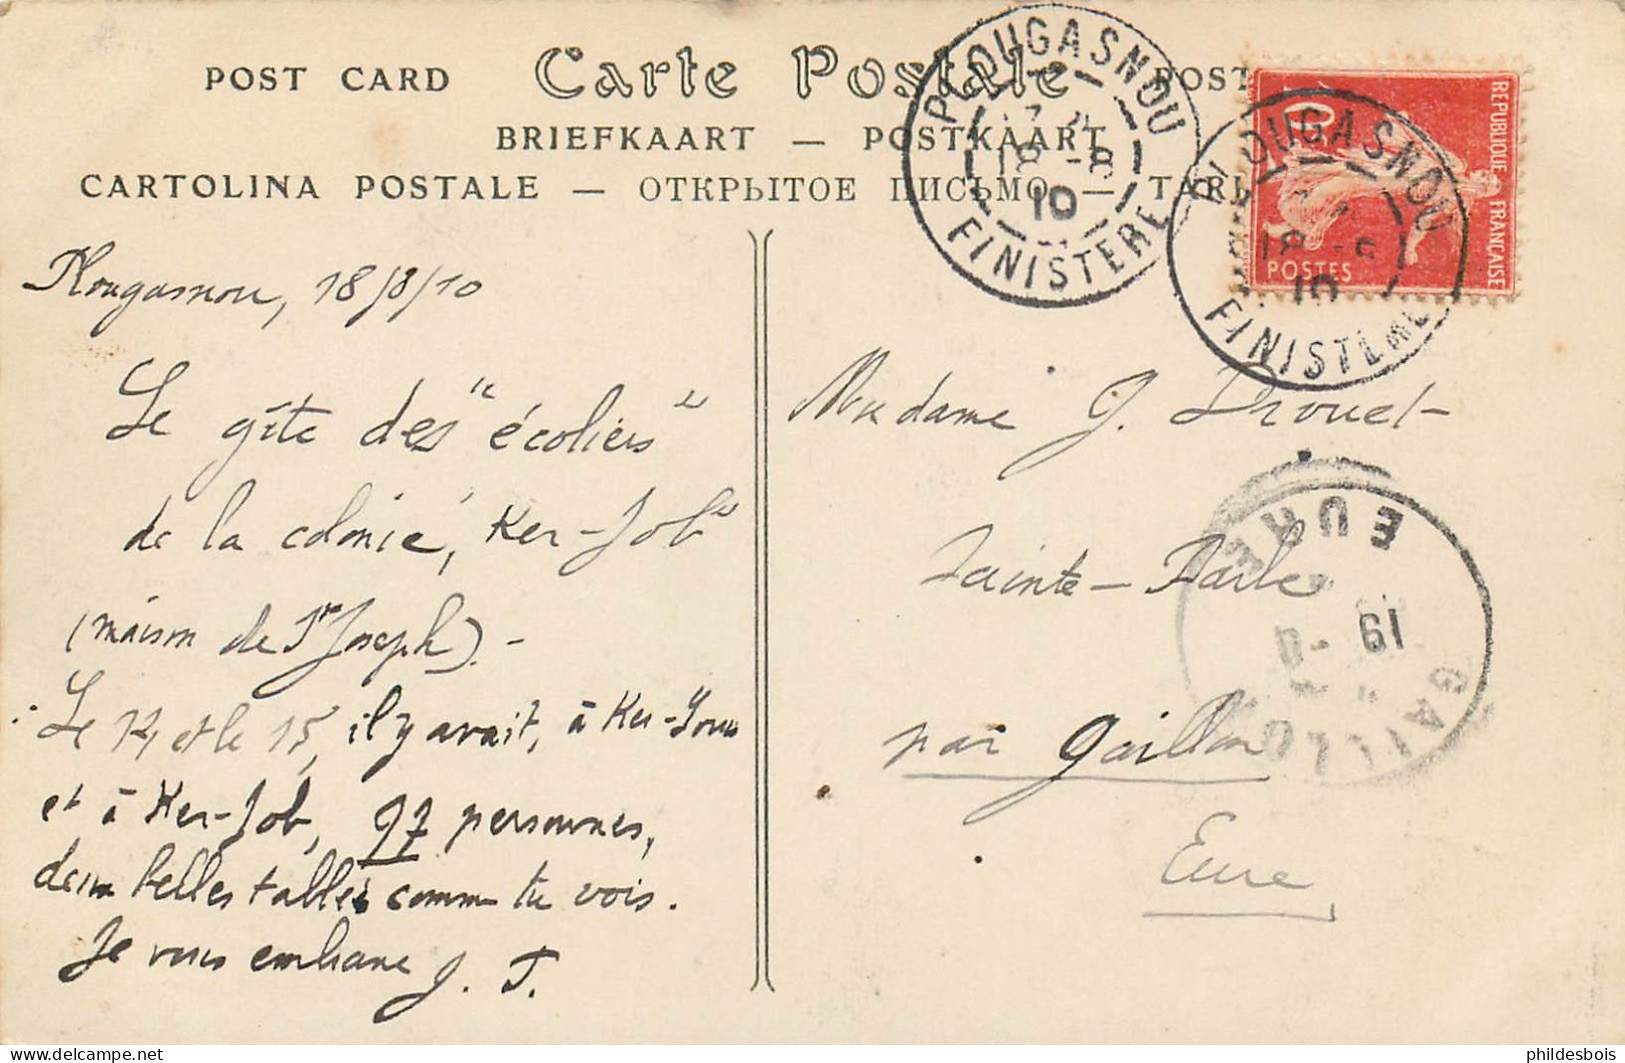 POST CARD Carte Postale POST
BRIEFKAART — POSTKAART
CARTOLINA POSTALE — ОТКРЫТОЕ ПИСЬМО — TAR
PLOUGASNOU
18 -8
10
FINISTERE
PLOUGASNOU
18 -8
10
FINISTERE
10
REPUBLIQUE FRANÇAISE
POSTES
Plougasnou, 18/8/10
Le gîte des "écoliers"
de la colonie, Ker-Job"
(maison de St Joseph). -
Le 14 et le 15, il y avait, à Ker-
et à Ker-Job, 97 personnes,
deux belles tables comme tu vois.
Je vous embrasse J. T.
Madame J. Drouet
Sainte-Barbe
par Gaillon
Eure
EURE
19 -8
GAILLO
delcampe.net
phildesbois